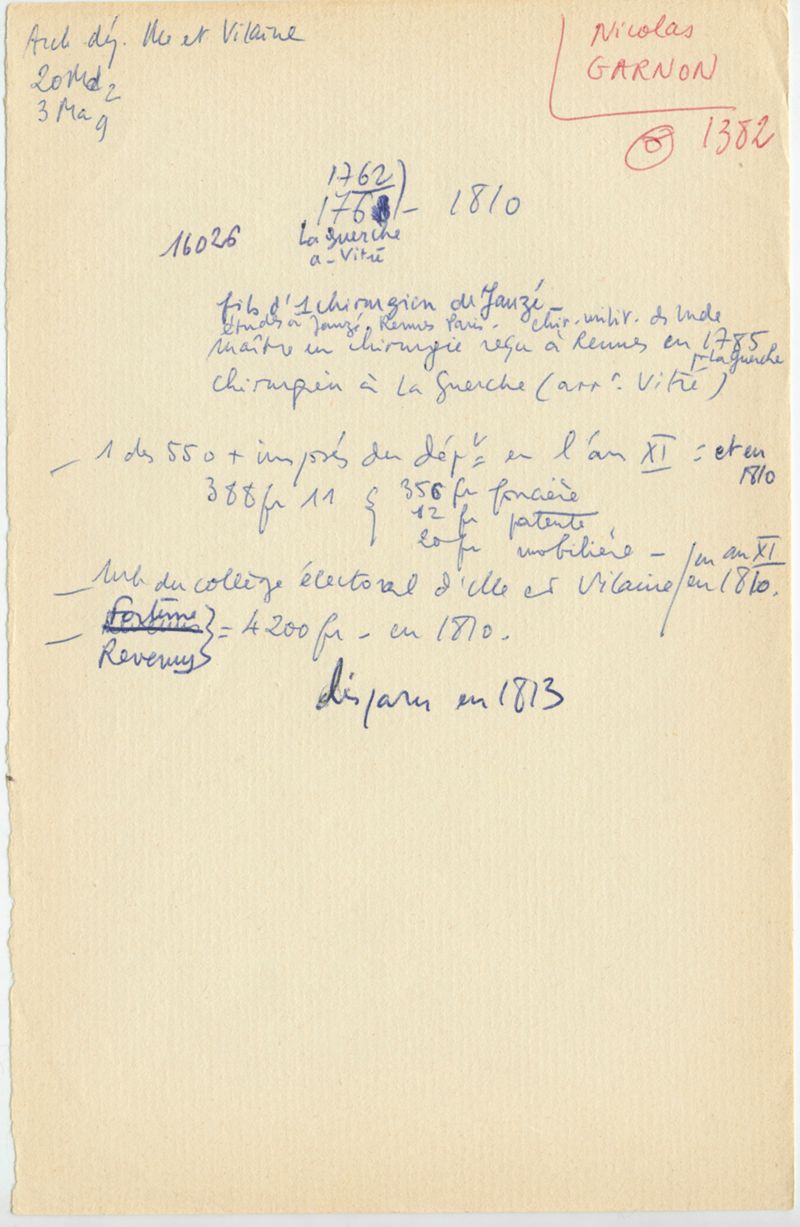 Arch dép. Ille et Vilaine
20Md2
3 Ma 9
Nicolas
GARNON
1382
1762
176 - 1810
16026
La Guerche
a - Vitré
fils d'1 chirurgien de Janzé -
études à Janzé. Rennes Paris. Chir. milit. ds Inde
maître en chirurgie reçu à Rennes en 1785
pr La Guerche
Chirurgien à La Guerche (arrt. Vitré)
- 1 des 550 + imposés du dépt en l'an XI = et en
1810
388 fr 11 { 356 fr foncière
12 fr patente
20 fr mobilière -
en an XI
- mb du collège électoral d'Ille et Vilaine / en 1810.
- Fortune
Revenus } = 4200 fr - en 1810.
disparu en 1813